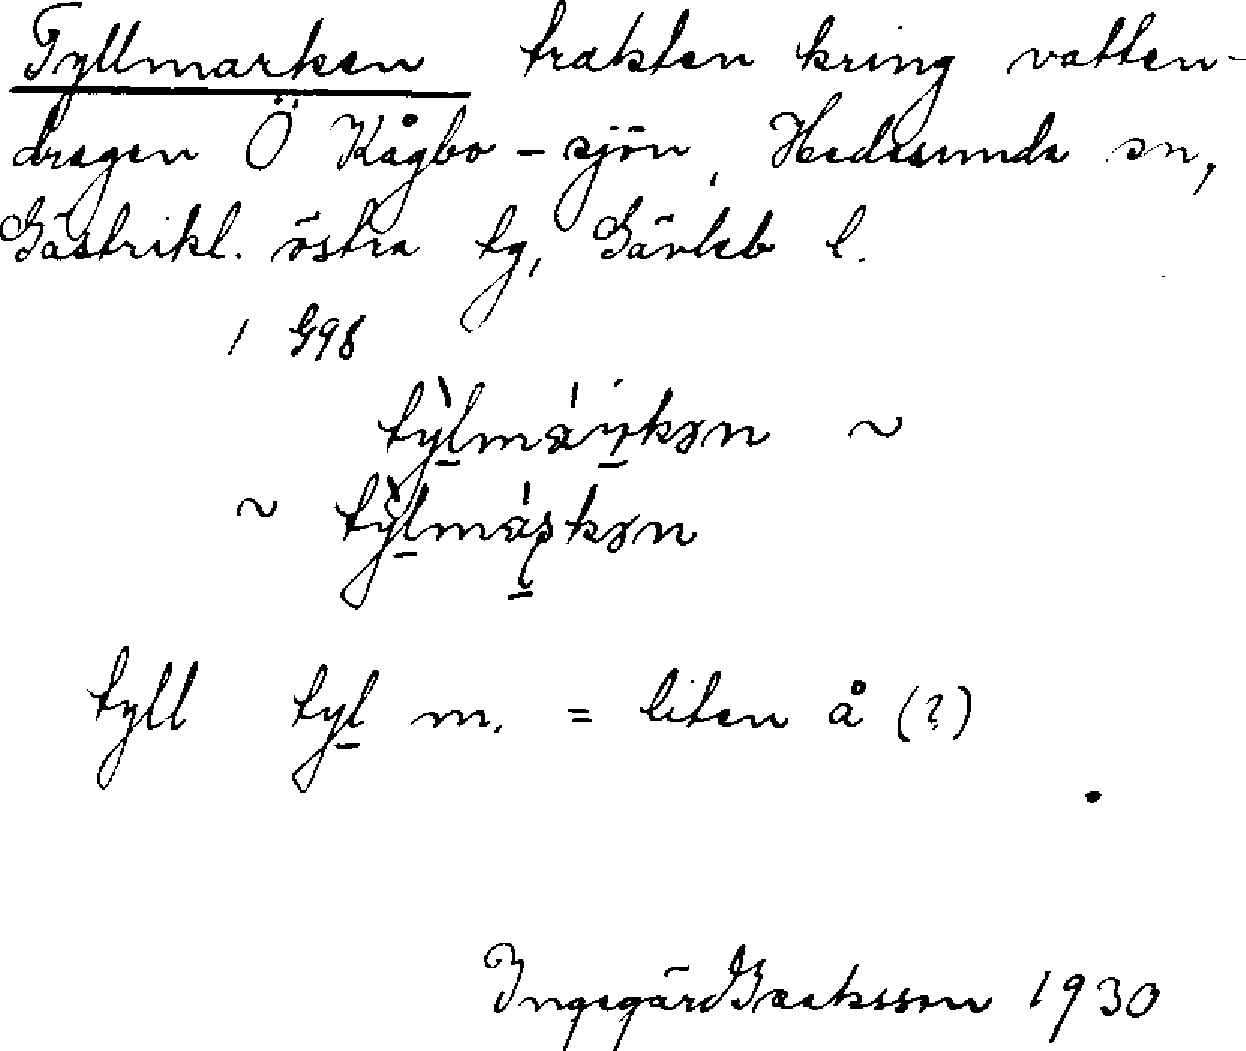 Tyllmarken trakten kring vatten-
dragen Ö Kågbo - sjön, Hedesunda sn,
Gästrikl. östra tg, Gävleb l.
1 G98
ty̆̀l̲má
~
~
tyll tyl̲ m. = liten å (?)
Ingegärd Isaksson 1930